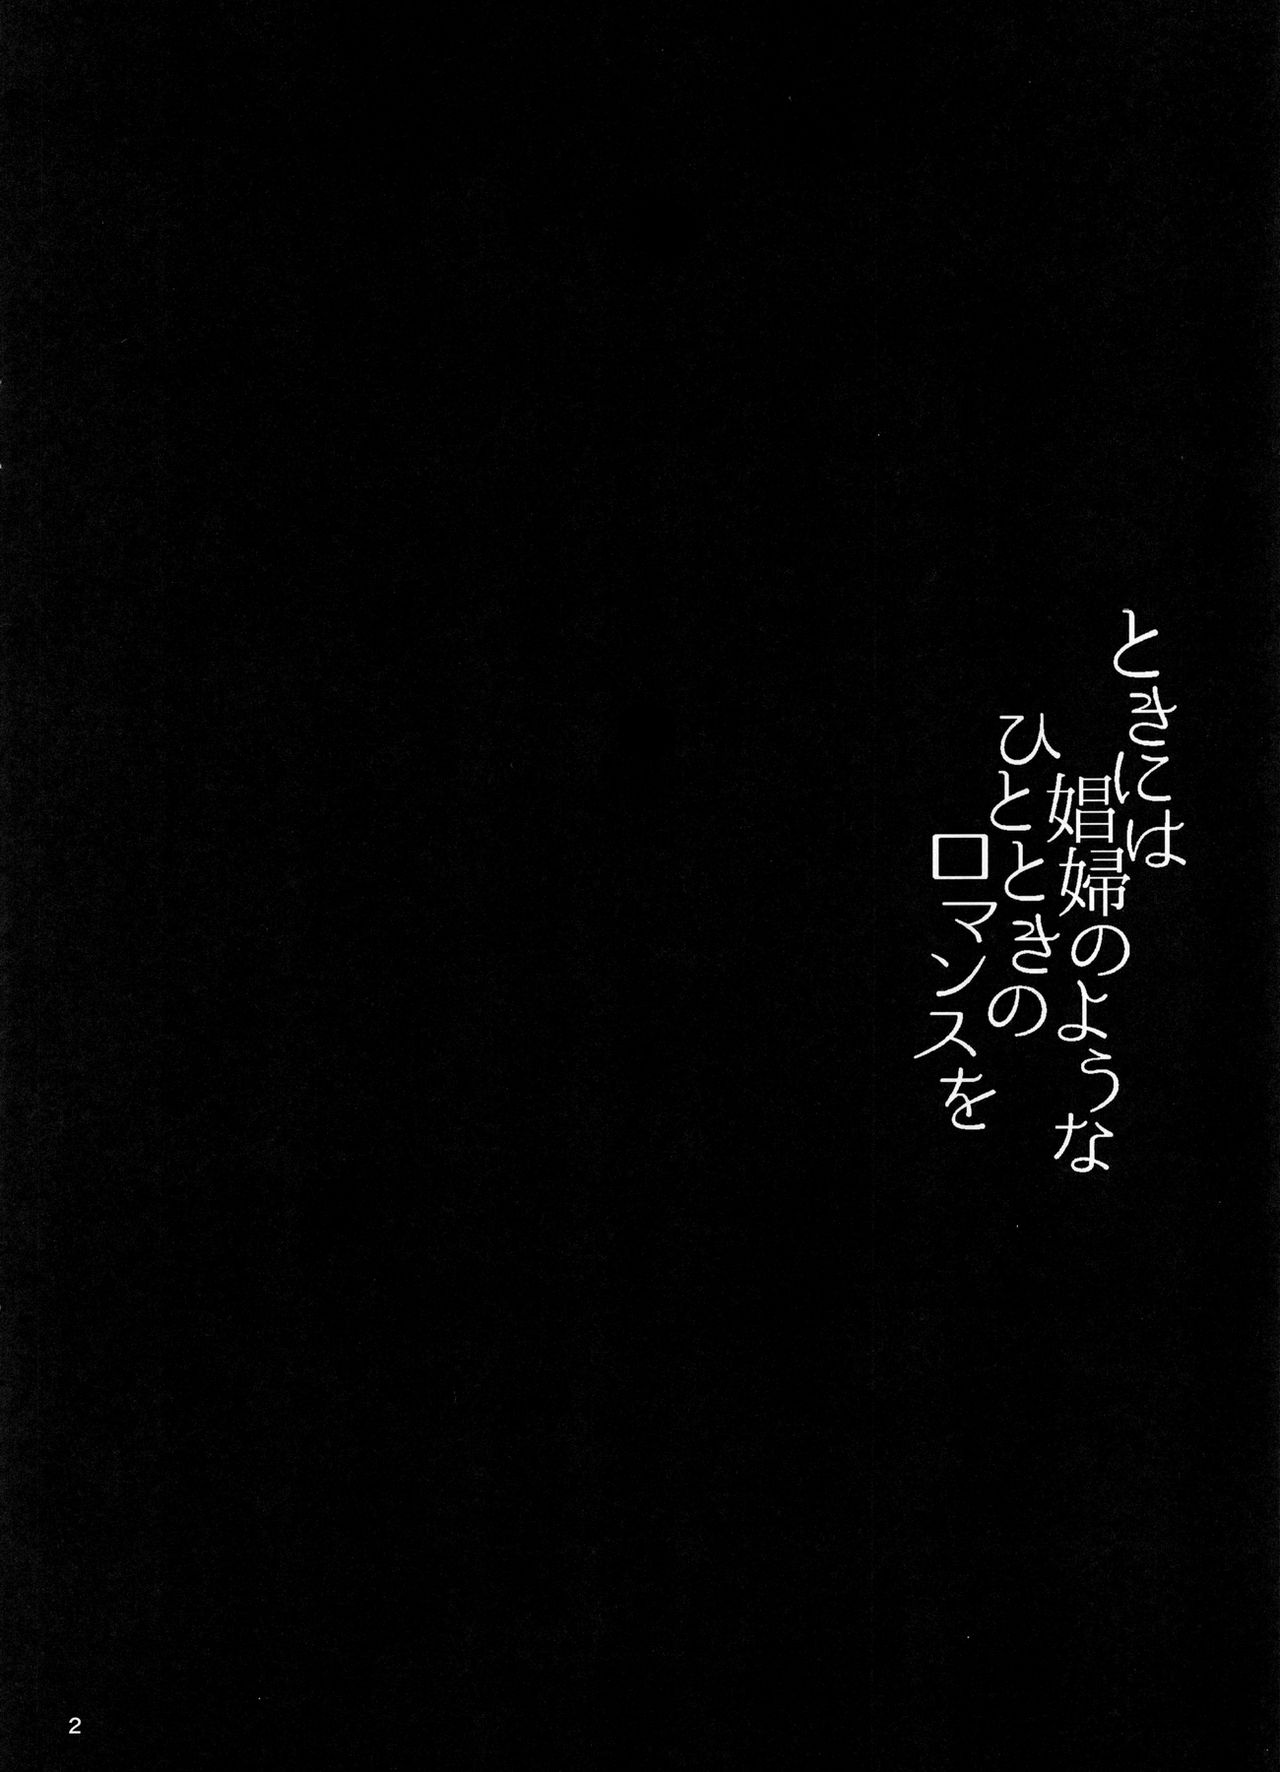 ときには
娼婦のような
ひとときの
ロマンスを
2